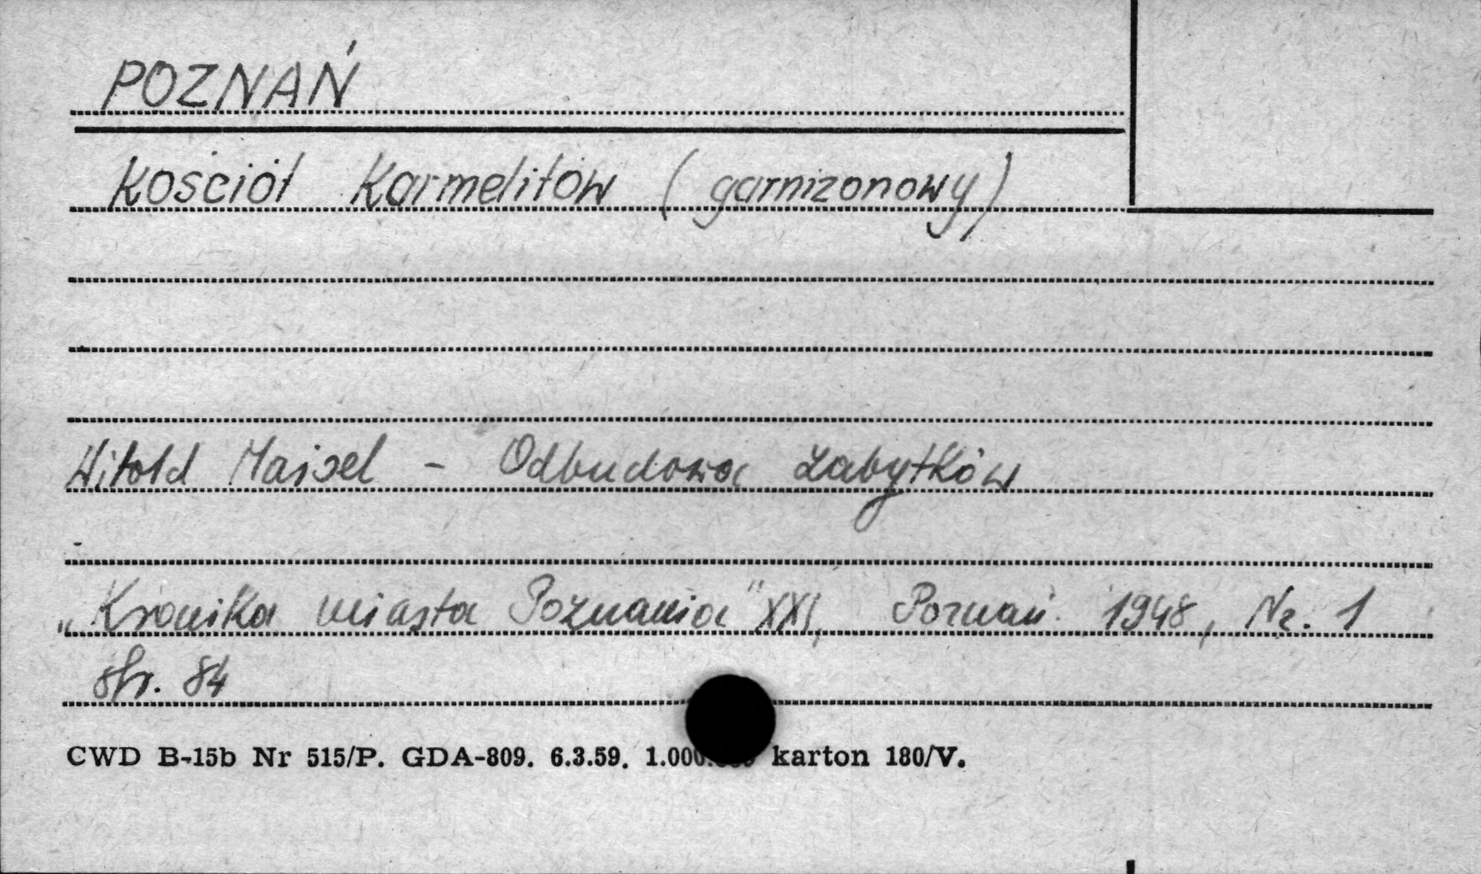 POZNAŃ
Kościół Karmelitów (garnizonowy)
Witold Maisel - Odbudowa zabytków
„Kronika miasta Poznania" XXI, Poznań 1948, Nr. 1
str. 84
CWD B-15b Nr 515/P. GDA-809. 6.3.59. karton 180/V.